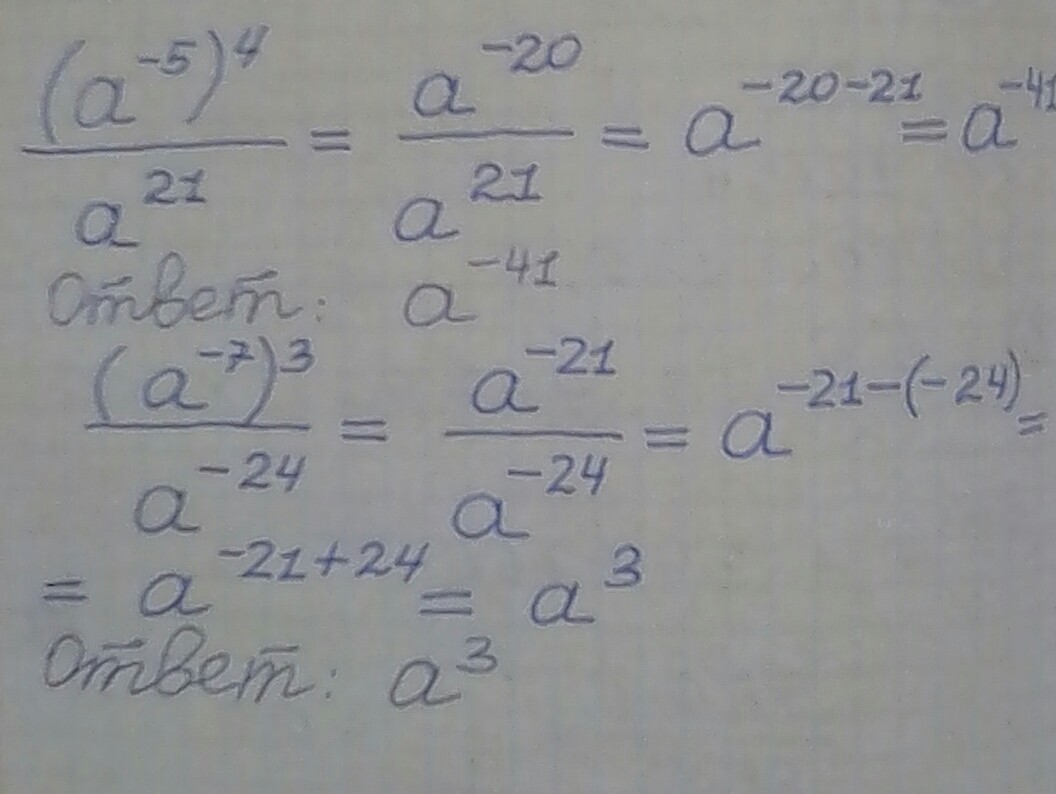 (a⁻⁵)⁴/a²¹ = a⁻²⁰/a²¹ = a⁻²⁰⁻²¹ = a⁻⁴¹
Ответ: a⁻⁴¹
(a⁻⁷)³/a⁻²⁴ = a⁻²¹/a⁻²⁴ = a⁻²¹⁻⁽⁻²⁴⁾ =
= a⁻²¹⁺²⁴ = a³
Ответ: a³